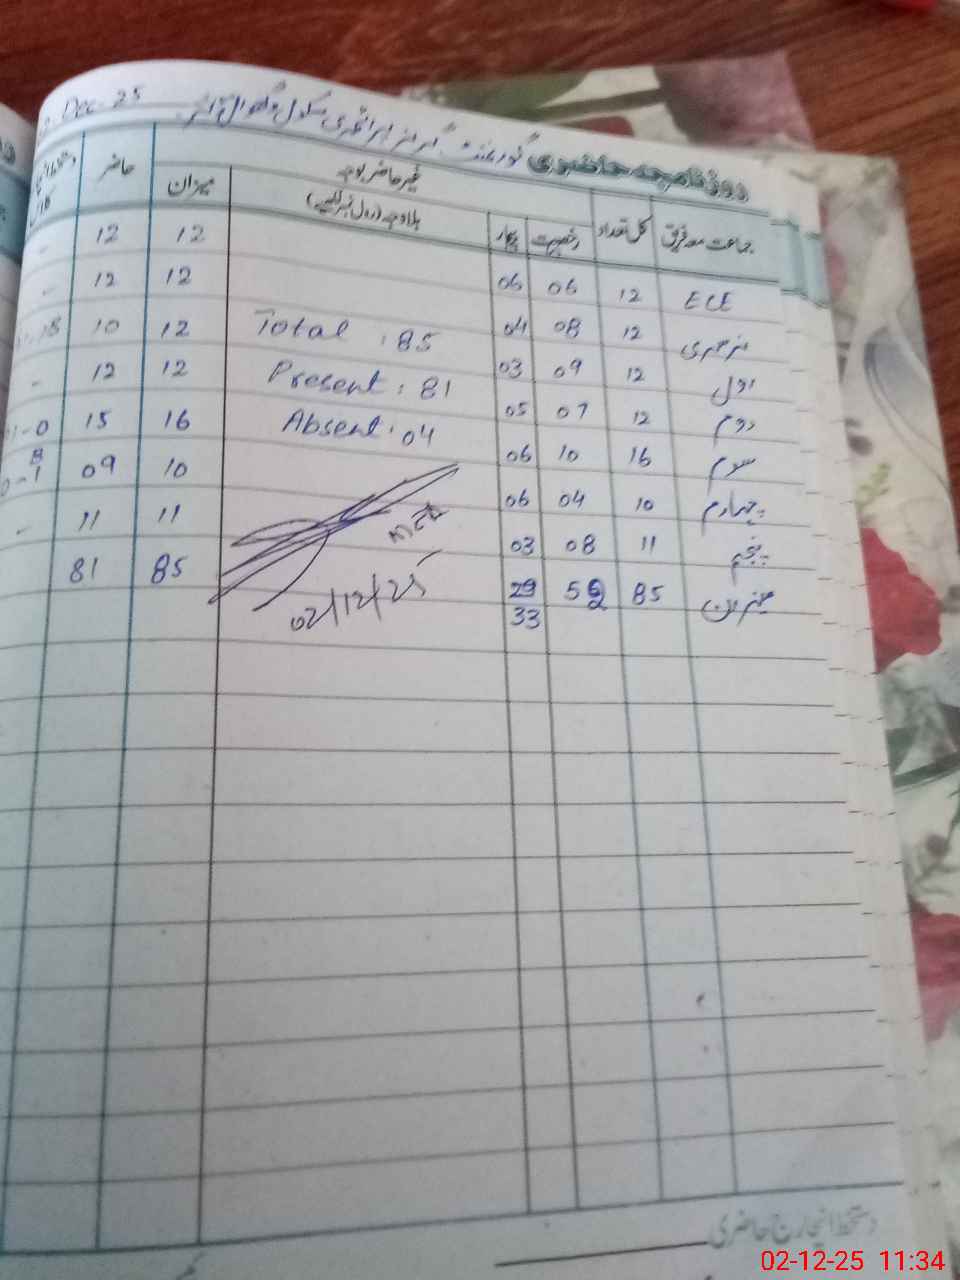 Dec-25
روزنامچہ حاضری گورنمنٹ گرلز پرائمری سکول
جماعت معہ فریق کل تعداد غیر حاضر بوجہ میزان حاضر
رخصت بیمار بلاوجہ (رول نمبر لکھیے)
ECE 12 06 06 12 12
نرسری 12 08 04 12 12
اول 12 09 03 12 10
دوم 12 07 05 12 12
سوم 16 10 06 16 15
چہارم 10 04 06 10 09
پنجم 11 08 03 11 11
میزان 85 52 29 85 81
33
Total : 85
Present : 81
Absent : 04
02/12/25
دستخط انچارج حاضری
02-12-25 11:34